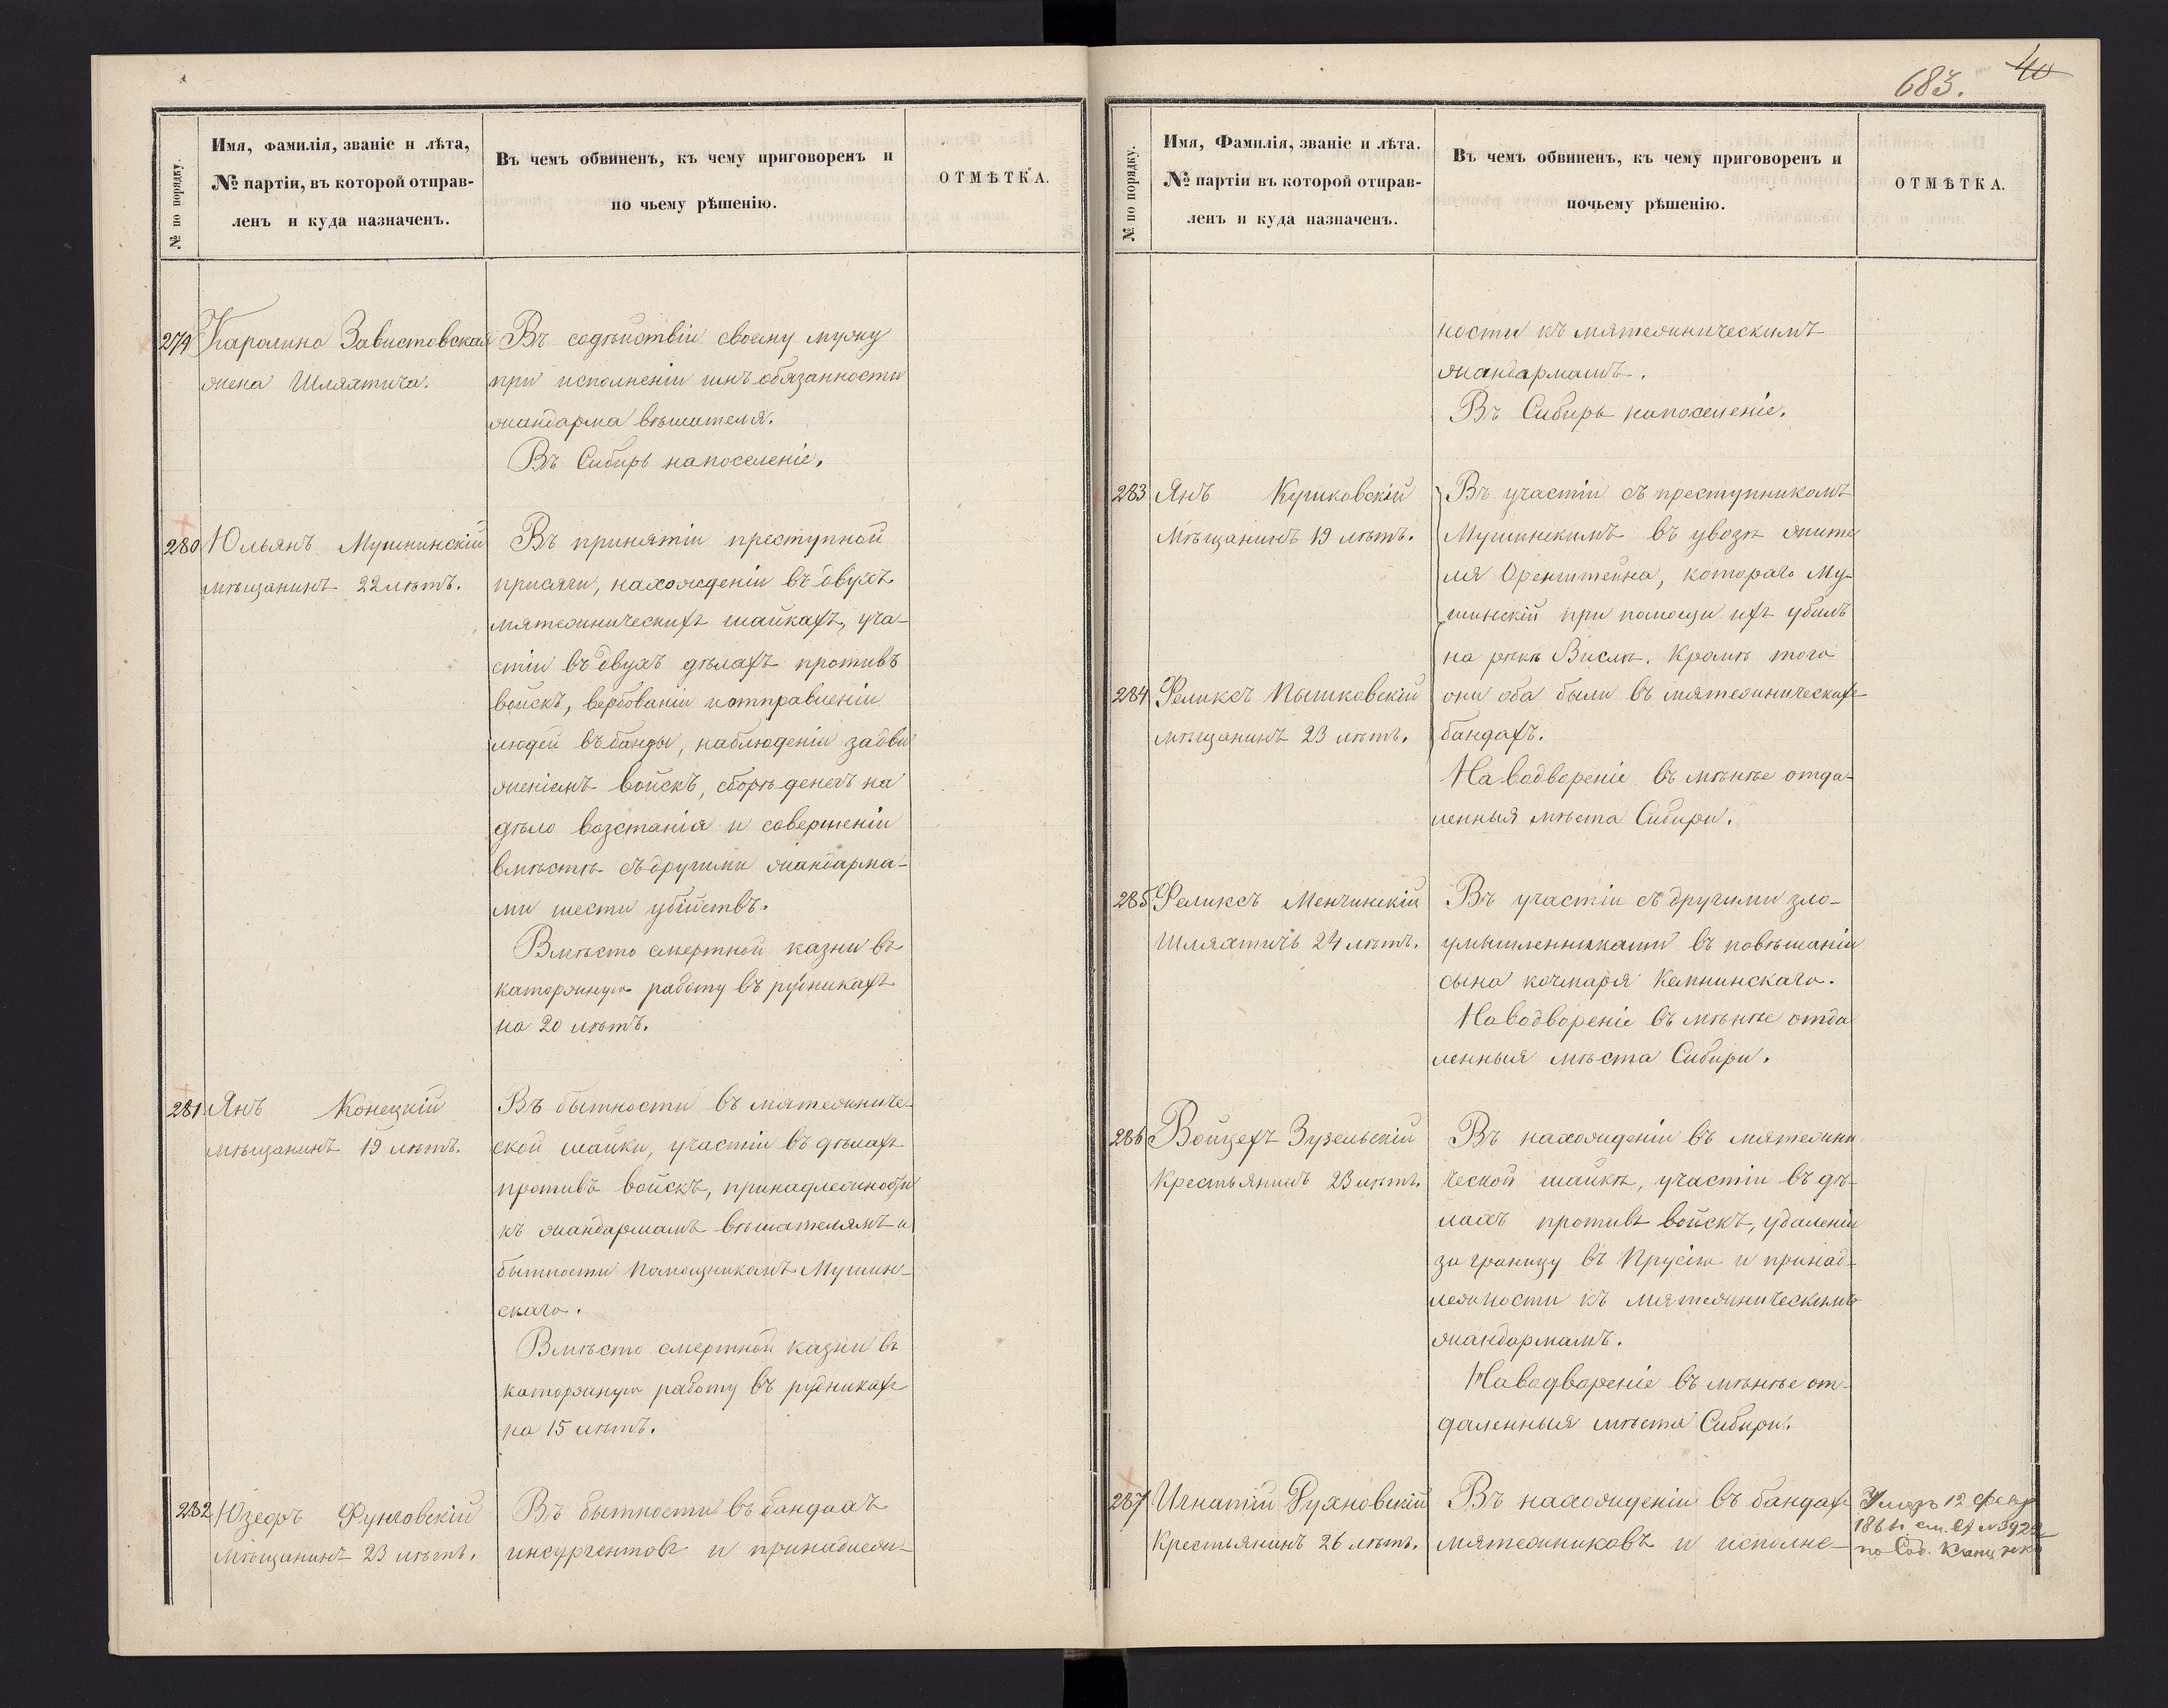 683.
40
№ по порядку.
Имя, фамилія, званіе и лѣта,
№ партіи, въ которой отправ-
ленъ и куда назначенъ.
Въ чемъ обвиненъ, къ чему приговоренъ и
по чьему рѣшенію.
ОТМѢТКА.
279 Каролина Завистовская
жена Шляхтича.
Въ содѣйствіи своему мужу
при исполненіи имъ обязанности
жандарма вѣшателя.
Въ Сибирь на поселеніе.
280 Юльянъ Мушинскій
мѣщанинъ 22 лѣтъ.
Въ принятіи преступной
присяги, нахожденіи въ двухъ
мятежническихъ шайкахъ, уча-
стіи въ двухъ дѣлахъ противъ
войскъ, вербованіи и отправленіи
людей въ банды, наблюденіи за дви
женіемъ войскъ, сборѣ денегъ на
дѣло возстанія и совершеніи
вмѣстѣ съ другими жандарма-
ми шести убійствъ.
Вмѣсто смертной казни въ
каторжную работу въ рудникахъ
на 20 лѣтъ.
281 Янъ Конецкій
мѣщанинъ 19 лѣтъ.
Въ бытности въ мятежниче-
ской шайки, участіи въ дѣлахъ
противъ войскъ, принадлежности
къ жандармамъ вѣшателямъ и
бытности помощникамъ Мушин-
скаго.
Вмѣсто смертной казни въ
каторжную работу въ рудникахъ
на 15 лѣтъ.
282 Юзефъ Фунговскій
Мѣщанинъ 23 лѣтъ.
Въ бытности въ бандахъ
инсургентовъ и принадлеж-
№ по порядку.
Имя, Фамилія, званіе и лѣта.
№ партіи въ которой отправ-
ленъ и куда назначенъ.
Въ чемъ обвиненъ, къ чему приговоренъ и
почьему рѣшенію.
ОТМѢТКА.
ности къ мятежническимъ
жандармамъ.
Въ Сибирь на поселеніе.
283 Янъ Куликовскій
Мѣщанинъ 19 лѣтъ.
Въ участіи съ преступникомъ
Мушинскимъ въ увозѣ жите
ля Оренштейна, котораго Му-
шинскій при помощи ихъ убилъ
на рѣкѣ Вислѣ. Кромѣ того
284 Феликсъ Пашковскій
мѣщанинъ 23 лѣтъ.
они оба были въ мятежническихъ
бандахъ.
На водвореніе въ мѣнѣе отда-
ленныя мѣста Сибири.
285 Феликсъ Менчинскій
Шляхтичъ 24 лѣтъ.
Въ участіи съ другими зло-
умышленниками въ повѣшаніи
сына кочмаря Кемпинскаго.
На водвореніе въ мѣнѣе отда
ленныя мѣста Сибири.
286 Войцехъ Зузельскій
Крестьянинъ 23 лѣтъ.
Въ нахожденіи въ мятежни
ческой шайкѣ, участіи въ дѣ-
лахъ противъ войскъ, удаленіи
за границу въ Прусію и принад-
лежности къ мятежническимъ
жандармамъ.
На водвореніе въ мѣнѣе от-
даленныя мѣста Сибири.
287 Игнатій Рухновскій
Крестьянинъ 26 лѣтъ.
Въ нахожденіи въ бандахъ
мятежниковъ и исполне-
12 февр
1866